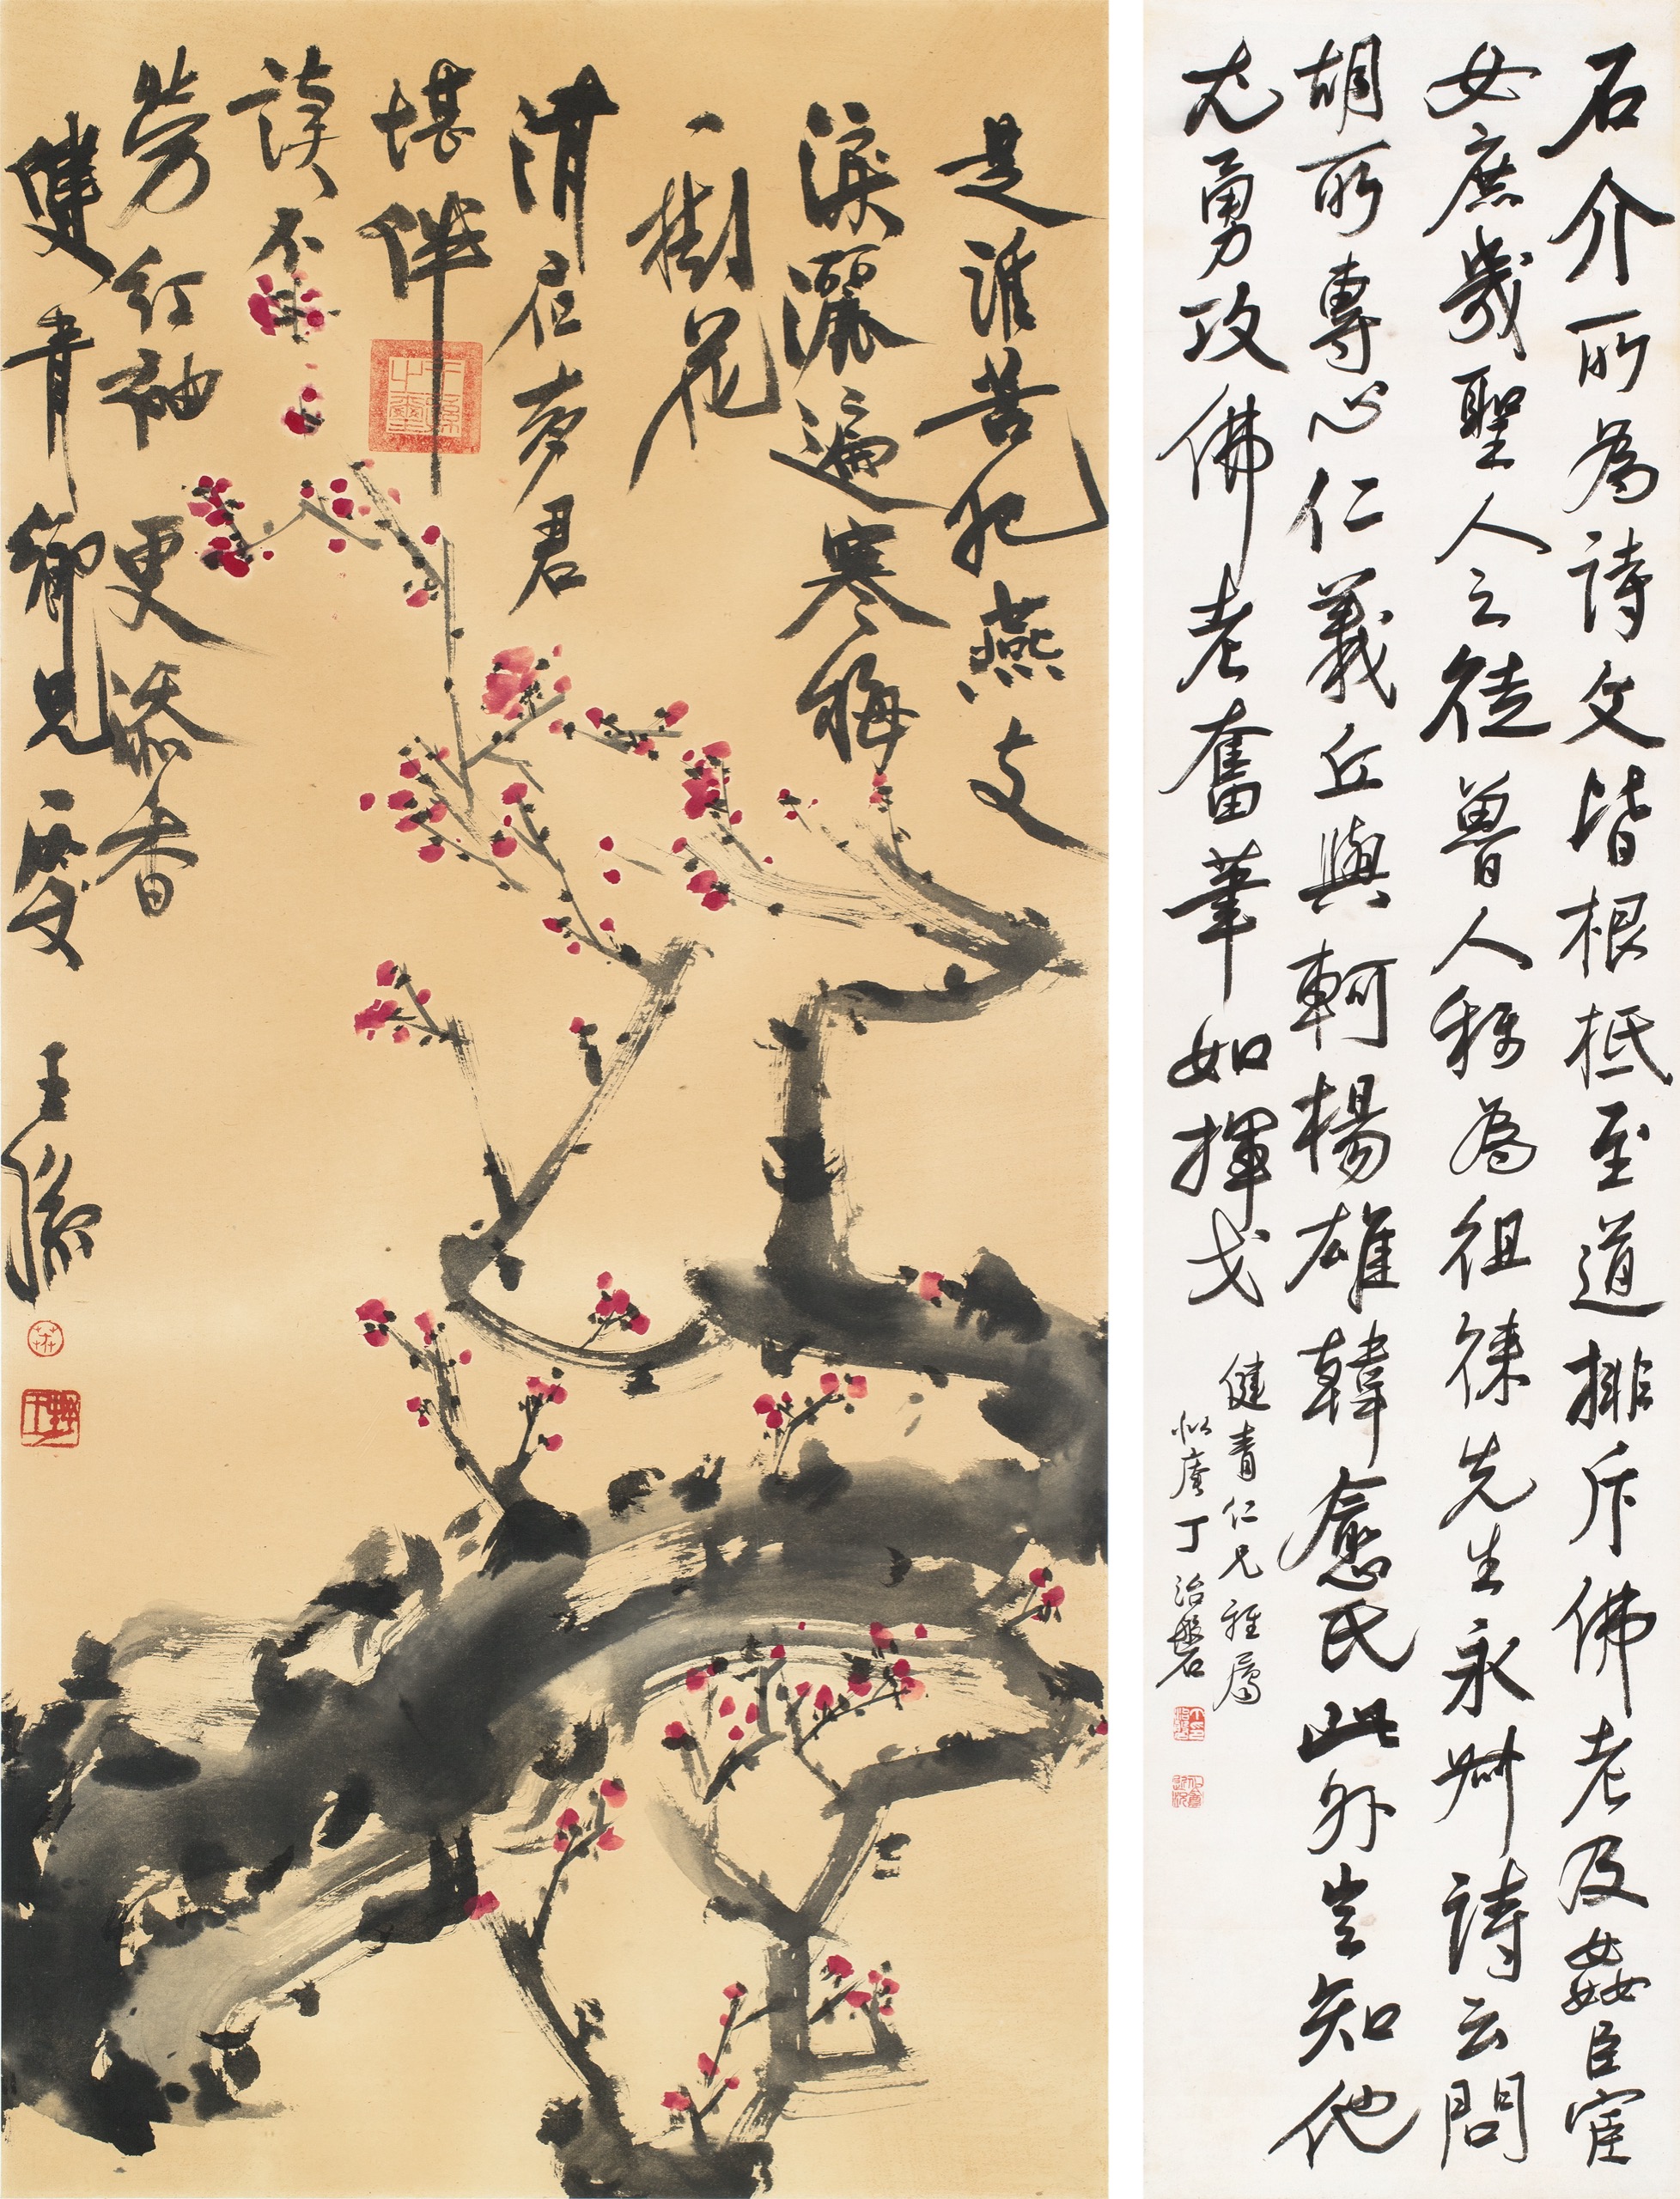 石介所為詩文皆根柢至道排斥佛老及姦臣宦
女庶幾聖人之徒魯人稱為徂徠先生永叔詩云問
胡所專心仁義丘與軻楊雄韓愈氏此外豈知他
尤勇攻佛老奮筆如揮戈
健青仁兄雅屬
似庵丁治磐
是誰苦把燕支
淚灑遍寒梅
一樹花
清 君
堪伴
讀不
勞紅袖更添香
健青鄉兄
王